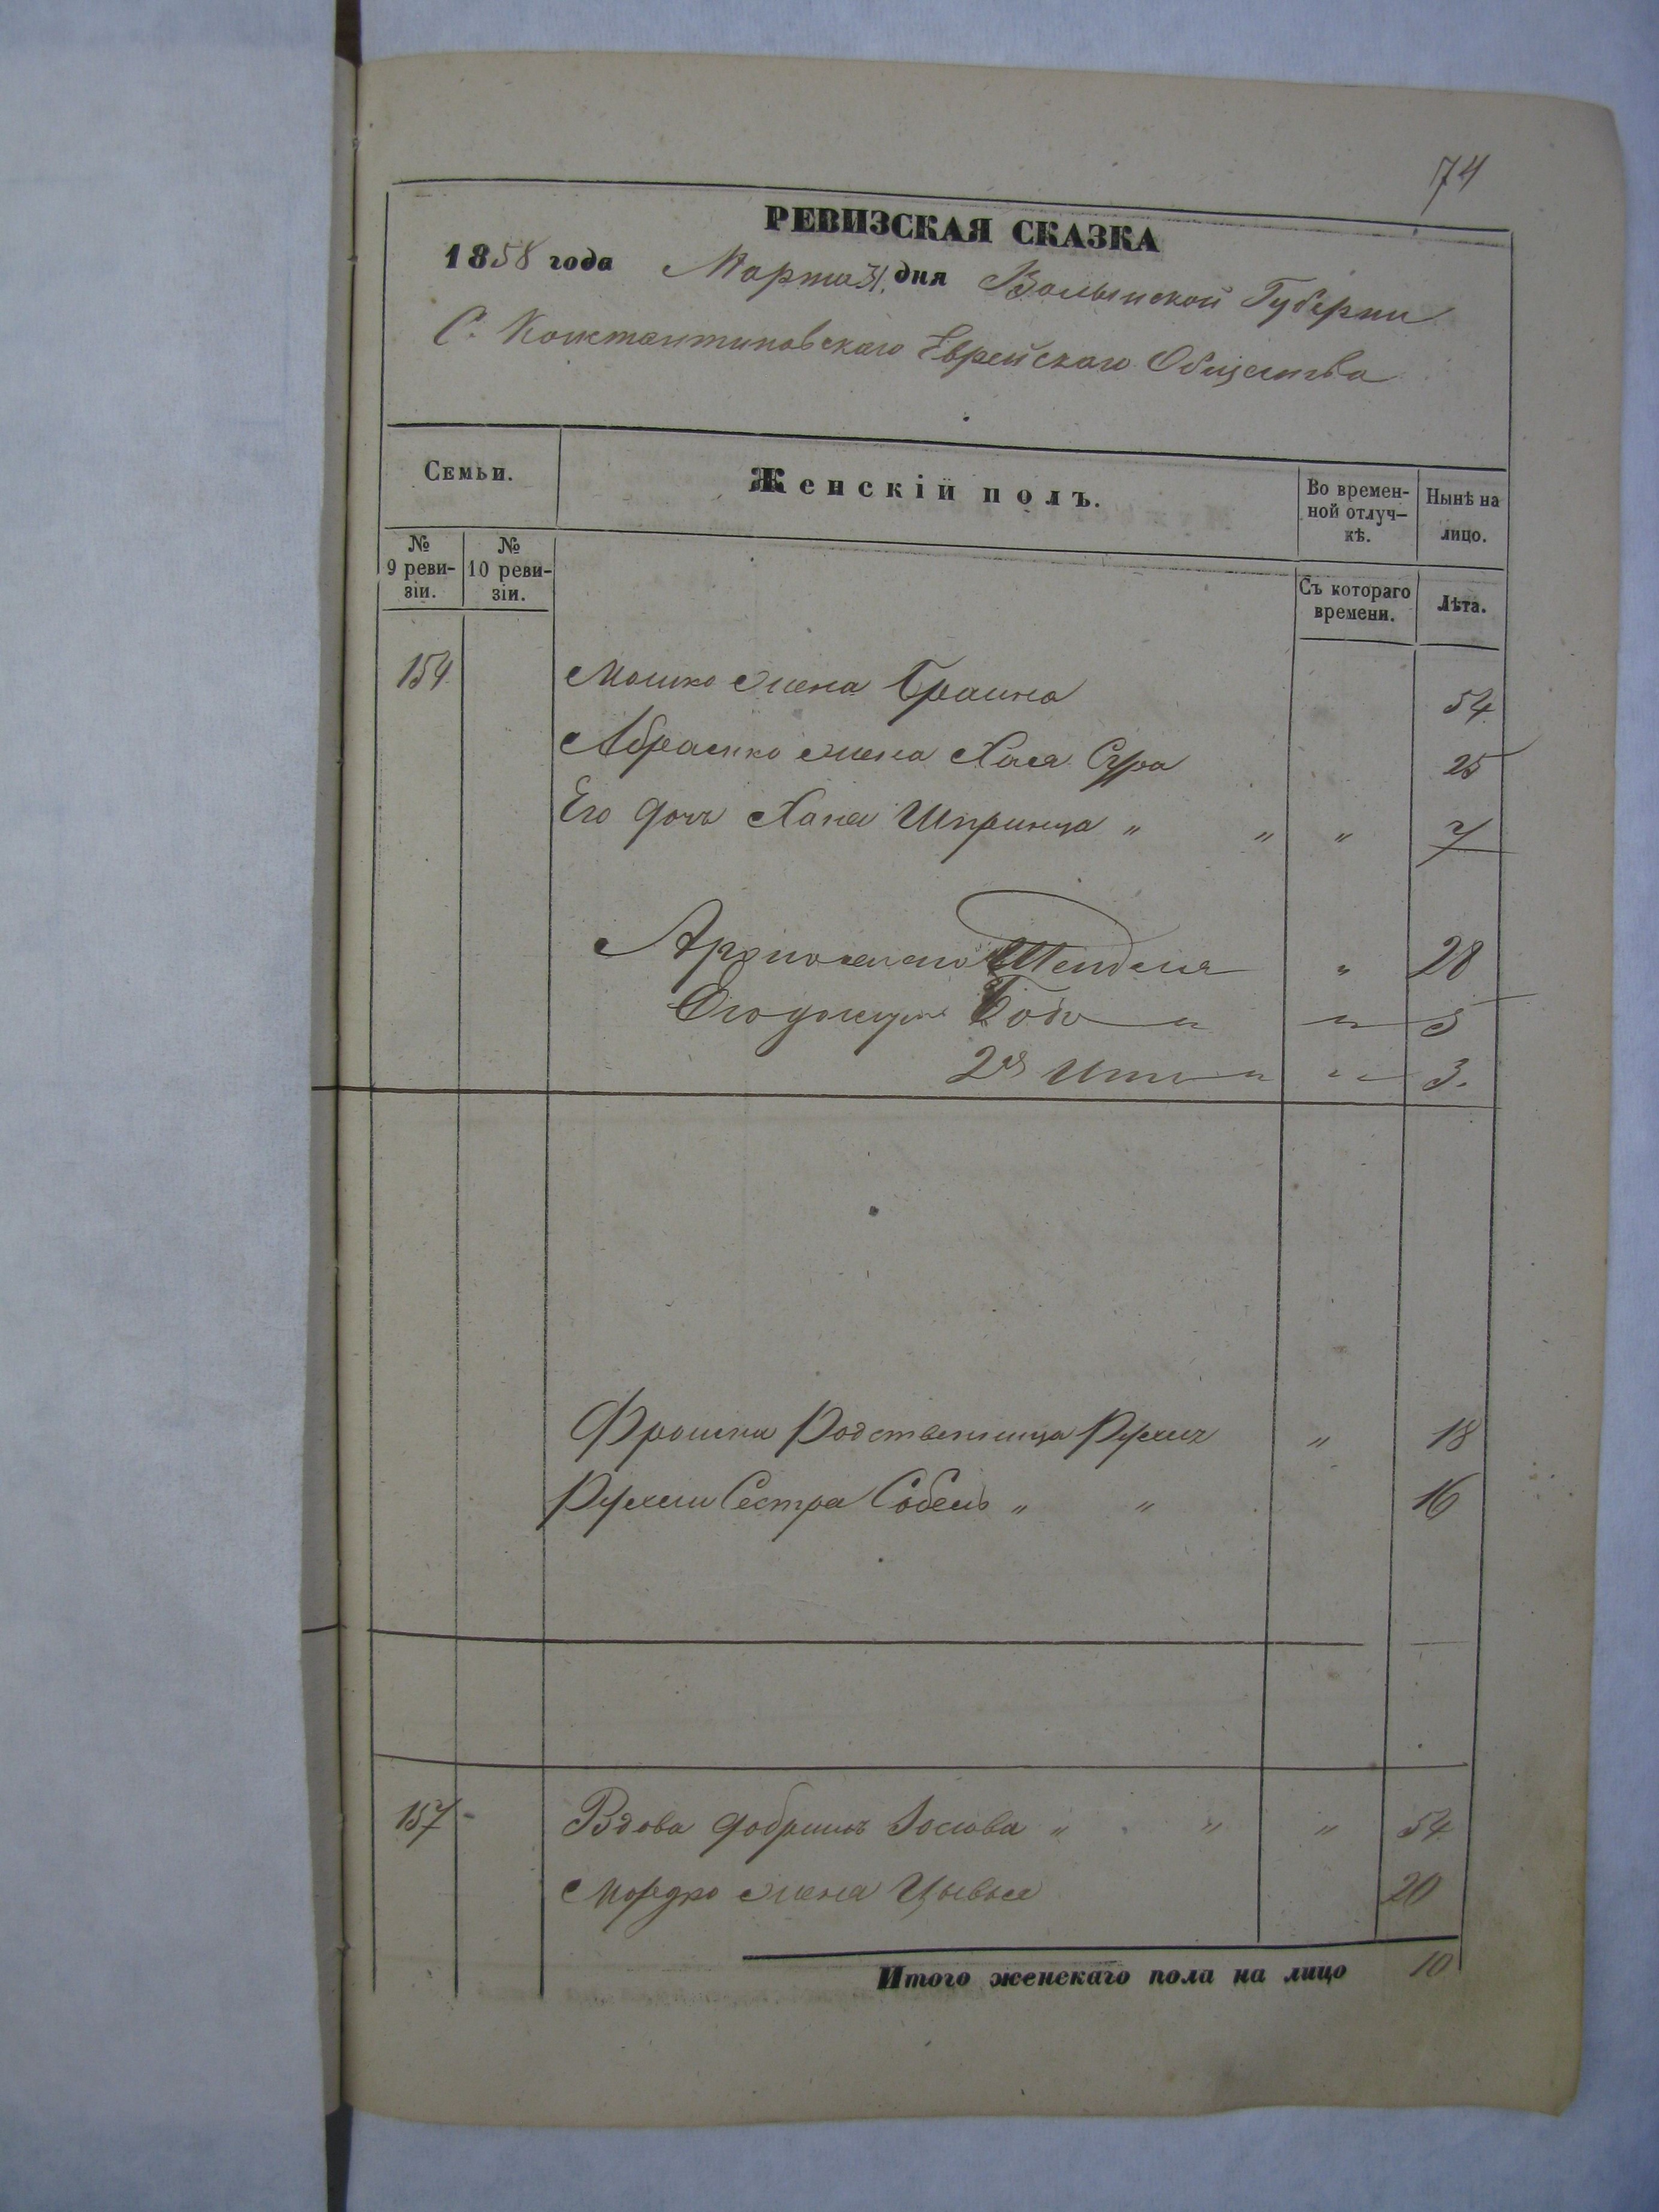 74
РЕВИЗСКАЯ СКАЗКА
1858 года Марта 31. дня Волынской Губерни
С. Константиновскаго Еврейскаго Общества
Семьи.
Женскій полъ.
Во времен-
ной отлуч-
кѣ.
Нынѣ на
лицо.
№
9 реви-
зіи.
№
10 реви-
зіи.
Съ котораго
времени.
Лѣта.
154 Мошко жена Граина 54
Абрамко жена Хася Сура 25
Его дочь Хана Шпринца " " " 7
Шендля " 28
5
2я 3.
Родственница Рухля " 18
Рухли Сестра Собель " " 16
157 - Вдова Іосіова " " " 54
Мордко жена Цывья 20
Итого женскаго пола на лицо 10